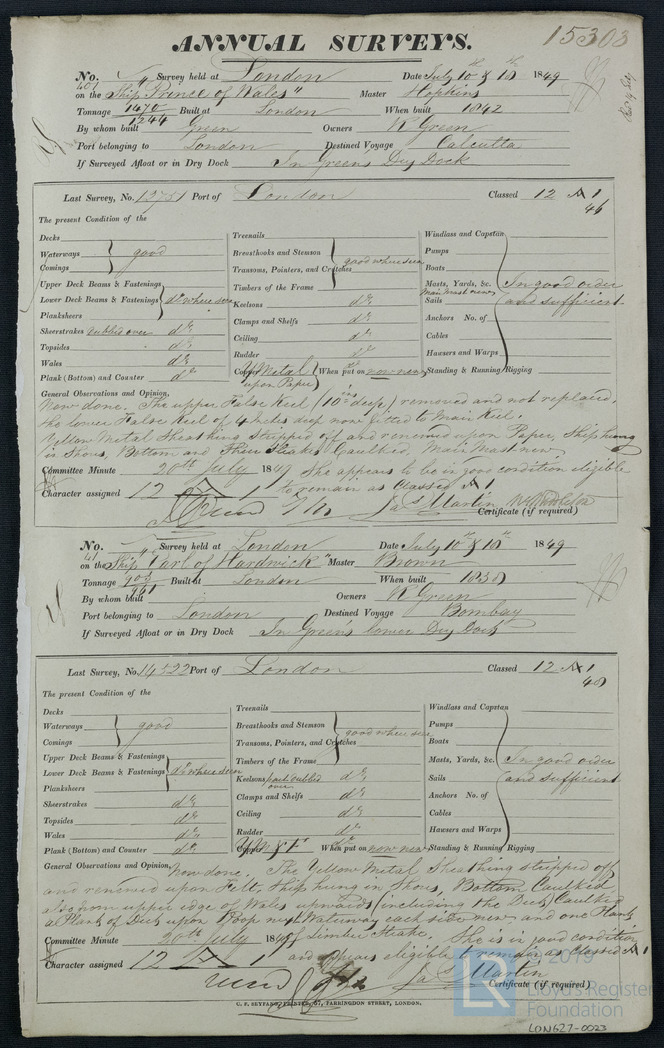 ANNUAL SURVEYS. 15303
No. Survey held at London Date July 10th & 18th 1849
on the Ship "Prince of Wales" Master Hopkins
Tonnage 1470 Built at London When built 1842
1244
By whom built Green Owners R Green
Port belonging to London Destined Voyage Calcutta
If Surveyed Afloat or in Dry Dock In Greens Dry Dock
Last Survey, No. 13751 Port of London Classed 12 A 1
46
The present Condition of the
Decks
Waterways good
Comings
Upper Deck Beams & Fastenings
Lower Deck Beams & Fastenings do where seen
Planksheers
Sheerstrakes Dubled over do
Topsides do
Wales do
Plank (Bottom) and Counter do
Treenails
Breasthooks and Stemson good where seen
Transoms, Pointers, and Crutches
Timbers of the Frame
Keelsons do
Clamps and Shelfs do
Ceiling do
Rudder do
Copper Y Metal upon Paper When put on now new
Windlass and Capstan
Pumps
Boats
Masts, Yards, &c. In good order
Main Mast new
Sails and sufficient
Anchors No. of
Cables
Hawsers and Warps
Standing & Running Rigging
General Observations and Opinion,
Now done. The upper False Keel (10 ins deep) removed and not replaced,
the lower False Keel of 4 Inches deep now fitted to Main Keel.
Yellow Metal Sheathing stripped off and renewed upon Paper, Ship hung
in Shoes, Bottom and Sheer Strakes Caulked, Main Mast new
Committee Minute 20th July 1849 She appears to be in good condition eligible
Character assigned 12 A 1 to remain as Classed A 1
Jas Martin
Certificate (if required)
No. Survey held at London Date July 10th & 18th 1849
on the Ship "Earl of Hardwick" Master Brown
Tonnage 903 Built at London When built 1838
961
By whom built Owners R Green
Port belonging to London Destined Voyage Bombay
If Surveyed Afloat or in Dry Dock In Green's lower Dry Dock
Last Survey, No. 14522 Port of London Classed 12 A 1
48
The present Condition of the
Decks
Waterways good
Comings
Upper Deck Beams & Fastenings
Lower Deck Beams & Fastenings do where seen
Planksheers
Sheerstrakes do
Topsides do
Wales do
Plank (Bottom) and Counter do
Treenails
Breasthooks and Stemson good where seen
Transoms, Pointers, and Crutches
Timbers of the Frame
Keelsons part dubled over do
Clamps and Shelfs do
Ceiling do
Rudder do
Copper When put on now new
Windlass and Capstan
Pumps
Boats
Masts, Yards, &c. In good order
Sails and sufficient
Anchors No. of
Cables
Hawsers and Warps
Standing & Running Rigging
General Observations and Opinion, Now done. The Yellow Metal Sheathing stripped off
and renewed upon Felt, Ship hung in Shoes, Bottom Caulked,
also from upper edge of Wales upwards (including the Deck) Caulked
a Plank of Deck upon Poop next Waterway each side new, and one Plank
Committee Minute 20th July 1849 of Limber Strake. She is in good condition
Character assigned 12 A 1 and appears eligible to remain as Classed A 1
Jas Martin
Certificate (if required)
C. F. SEYFANG, PRINTER, 57, FARRINGDON STREET, LONDON.
© 2019
Lloyd's Register
Foundation
LON627-0023